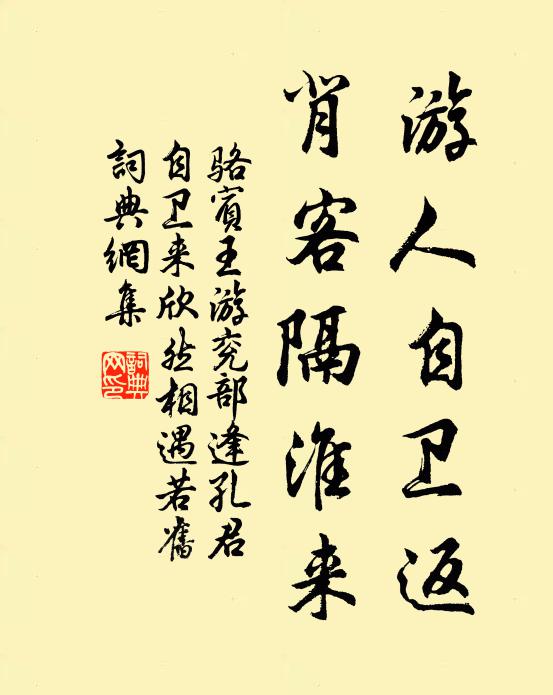 游人自卫返
背客隔淮来
骆賓王游兖部逢孔君
自卫来欣然相遇若舊
詞典網集
詞典网印